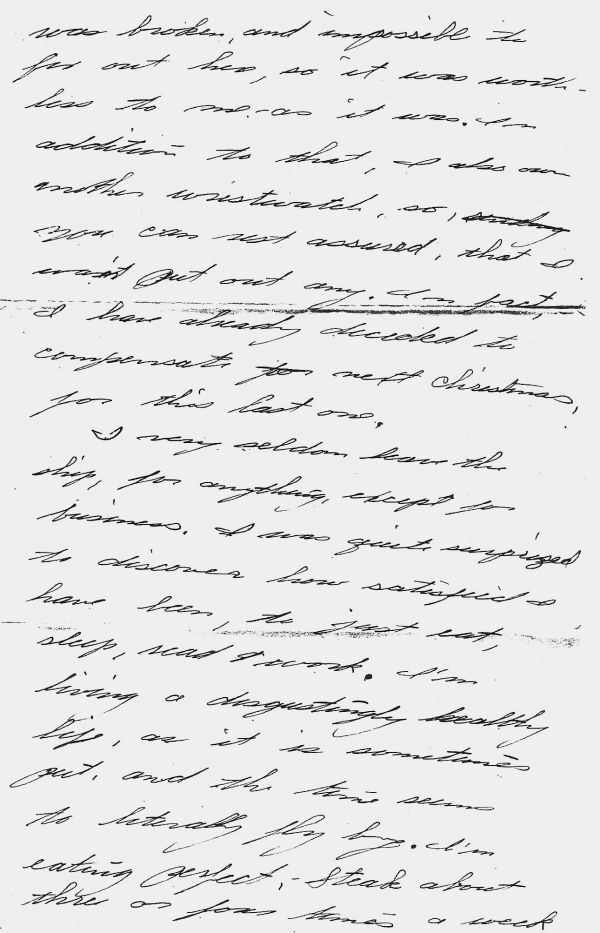 was broken, and impossible to
fix out here, so it was worth-
less to me - as it was. In
addition to that, I also own
another wristwatch, so, 
you can rest assured, that I
wasn't put out any. In fact,
I have already decided to
compensate for next Christmas,
for this last one.
I very seldom leave the
ship, for anything, except for
business. I was quite surprized
to discover how satisfied I
have been, to just eat,
sleep, read & work. I'm
living a disgustingly healthy
life, as it is sometimes
put, and the time seems
to literally fly by. I'm
eating perfect, - Steak about
three or four times a week